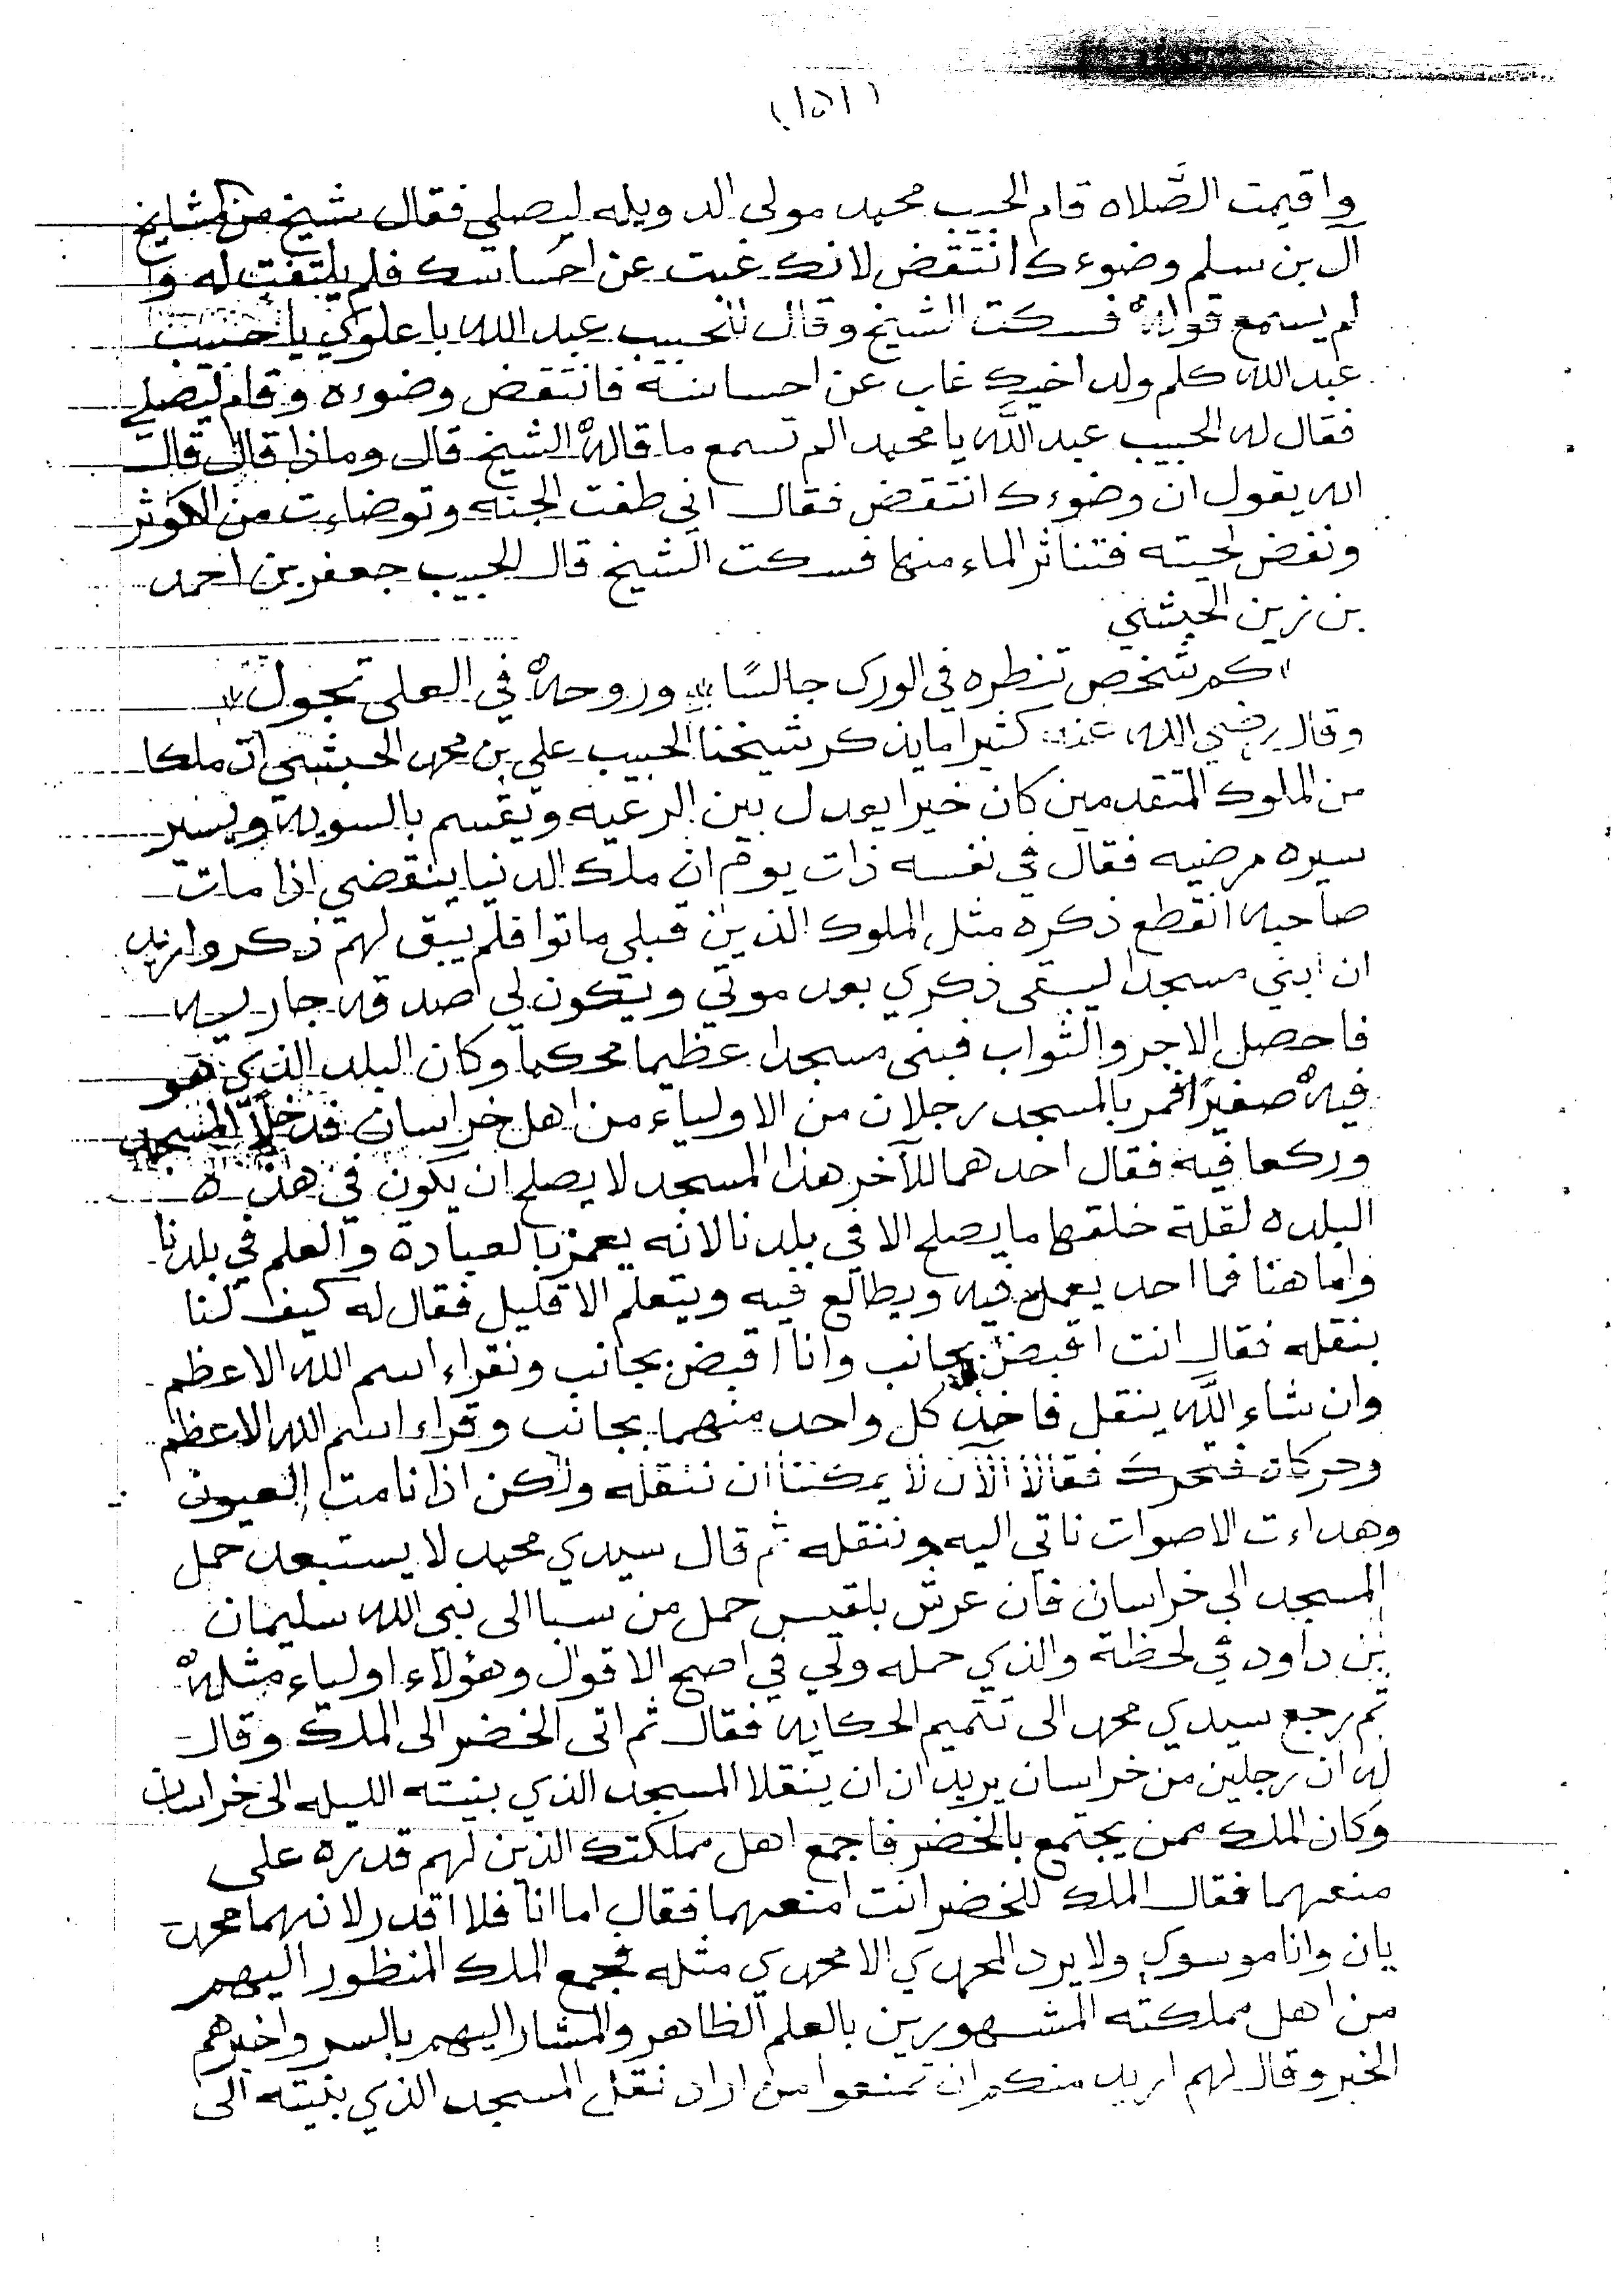 (١٥١)
واقيمت الصَّلاه قام الحبيب محمد مولى الدويله ليصلي فقال شيخ من مشايخ
آل بن سلم وضوءك انتقض لانك غبت عن احساسك فلم يلتفت له وا
لم يستمع قوله فسكت الشيخ وقال للحبيب عبد الله باعلوي يا حبيب
عبد الله كلم ولد اخيك غاب عن احساسه فانتقض وضوءه وقام ليصلي
فقال له الحبيب عبد اللَّه يا محمد الم تسمع ما قاله الشيخ قال وماذا قال قال
انه يقول ان وضوءك انتقض فقال اني طفت الجنه وتوضاءت من الكوثر
ونفض لحيته فتناثر الماء منها فسكت الشيخ قال الحبيب جعفر بن احمد
بن زين الحبشي
" كم شخص تنظره في الورى جالسًا " وروحه في العلى تجول "
وقال رضي الله عنه كثيرا ما يذكر شيخنا الحبيب علي بن محمد الحبشي ان ملكا
من الملوك المتقدمين كان خيرا يعدل بين الرعيه ويقسم بالسويه ويسير
سيره مرضيه فقال في نفسه ذات يوم ان ملك الدنيا ينقضي اذا مات
صاحبه انقطع ذكره مثل الملوك الذين قبلي ماتوا فلم يبق لهم ذكر واريد
ان ابني مسجدا ليبقى ذكري بعد موتي ويكون لي صدقه جاريه
فاحصل الاجر والثواب فبنى مسجدا عظيما محكما وكان البلد الذي هو
فيه صغيرًا فمر بالمسجد رجلان من الاولياء من اهل خراسان فدخلا المسجد
وركعا فيه فقال احدهما للآخر هذا المسجد لا يصلح ان يكون في هذه
البلده لقلة خلقها ما يصلح الا في بلدنا لانه يعمر بالعبادة والعلم في بلدنا
واما هنا فما احد يعمل فيه ويطالع فيه ويتعلم الا قليل فقال له كيف لنا
بنقله فقال انت اقبض بجانب وانا اقبض بجانب ونقراء اسم الله الاعظم
وان شاء اللَّه ينقل فاخذ كل واحد منهما بجانب وقراء اسم الله الاعظم
وحركاه فتحرك فقالا الآن لا يمكننا ان ننقله ولكن اذا نامت العيون
وهداءت الاصوات ناتي اليه وننقله ثم قال سيدي محمد لا يستبعد حمل
المسجد الى خراسان فان عرش بلقيس حمل من سبا الى نبي الله سليمان
بن داود في لحظة والذي حمله ولي في اصح الاقوال وهؤلاء اولياء مثله
ثم رجع سيدي محمد الى تتميم الحكايه فقال ثم اتى الخضر الى الملك وقال
له ان رجلين من خراسان يريدان ان ينقلا المسجد الذي بنيته الليله الى خراسان
وكان الملك ممن يجتمع بالخضر فاجمع اهل مملكتك الذين لهم قدره على
منعهما فقال الملك للخضر انت امنعهما فقال اما انا فلا اقدر لانهما محمد
يان وانا موسوي ولا يرد المحمدي الا محمدي مثله فجمع الملك المنظور اليهم
من اهل مملكته المشهورين بالعلم الظاهر والمشار اليهم بالسر واخبرهم
الخبر وقال لهم اريد منكم ان تمنعوا من اراد نقل المسجد الذي بنيته الى